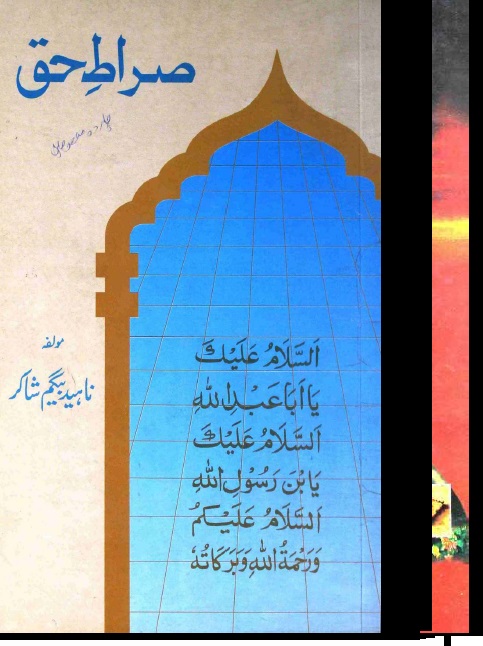 صراطِ حق
مولفہ
ناہید بیگم شاکر
اَلسَّلَامُ عَلَيْكَ
يَا اَبَا عَبْدِ اللهِ
اَلسَّلَامُ عَلَيْكَ
يَا بْنَ رَسُوْلِ اللهِ
اَلسَّلَامُ عَلَيْكُمْ
وَرَحْمَةُ اللهِ وَبَرَكَاتُهٗ